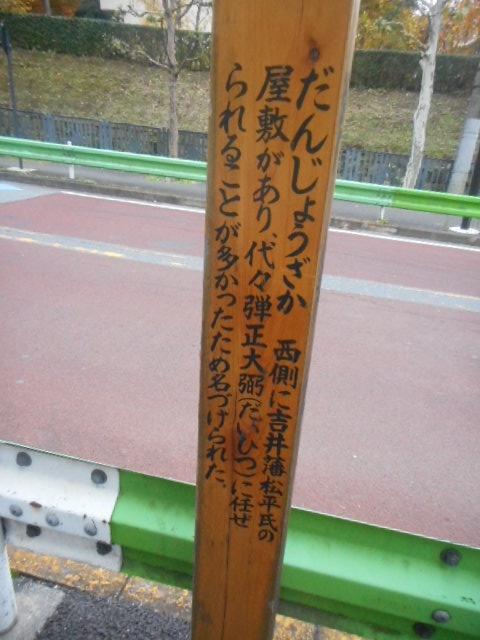 だんじょうざか 西側に吉井藩松平氏の
屋敷があり、代々弾正大弼(だいひつ)に任せ
られることが多かったため名づけられた。